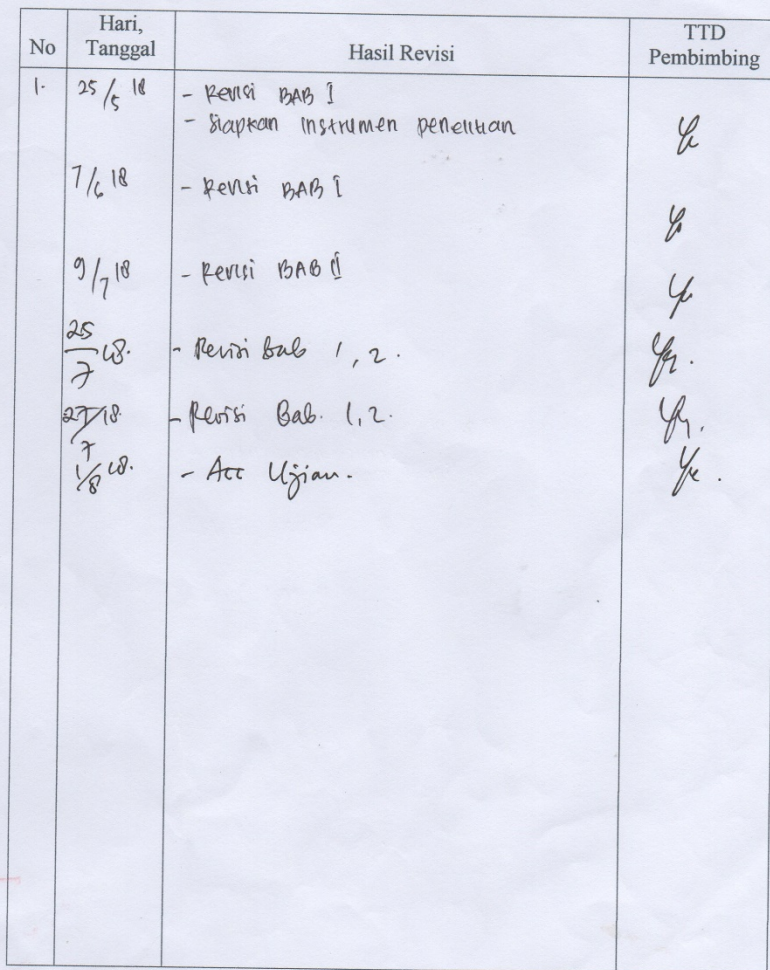 No Hari, Tanggal Hasil Revisi TTD Pembimbing
1. 25/5 18 - Revisi BAB I
- Siapkan instrumen penelitian
7/6 18 - Revisi BAB I
9/7 18 - Revisi BAB II
25/7 18. - Revisi Bab 1, 2.
27/7 18. - Revisi Bab. 1, 2.
1/8 18. - Acc Ujian.